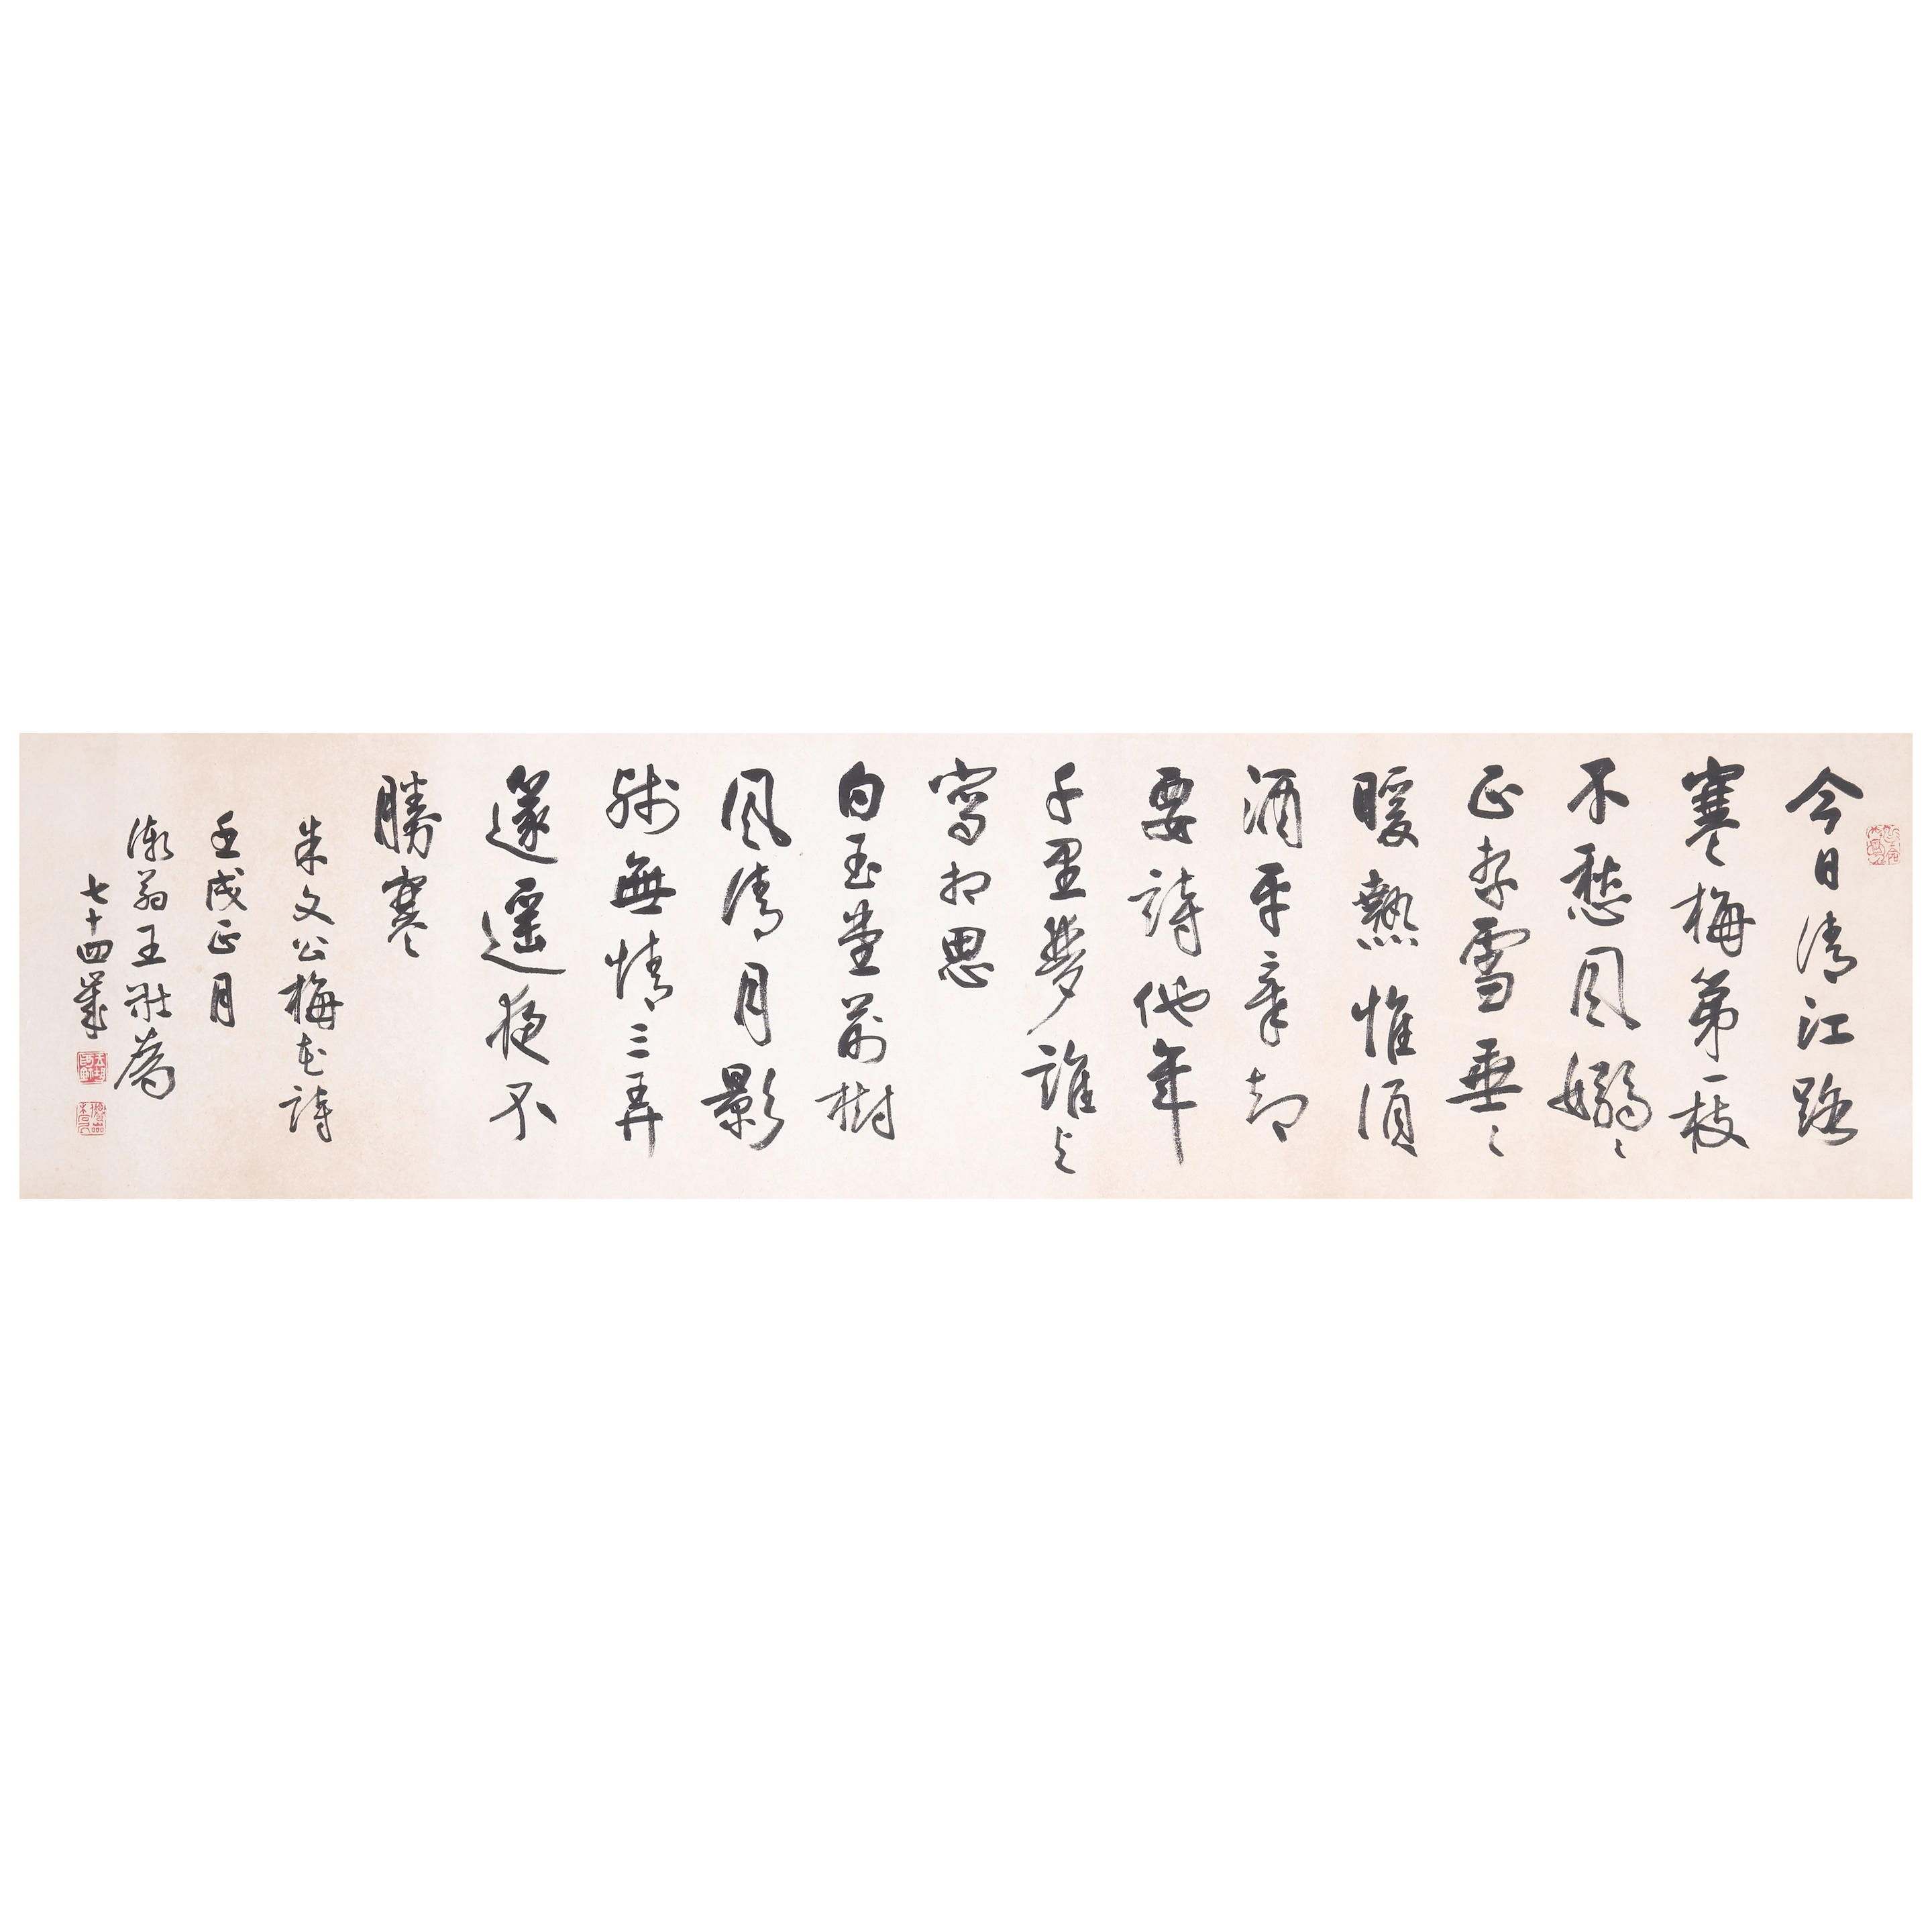 今日清江路
寒梅第一枝
不愁風嫋〻
正奈雪垂〻
暖熱惟須
酒平章却
要詩他年
千里夢誰与
寫相思
白玉堂前樹
風清月影
殘無情三弄
篴遥夜不
勝寒
朱文公梅花詩
壬戌正月
漸翁王壯為
七十四歲